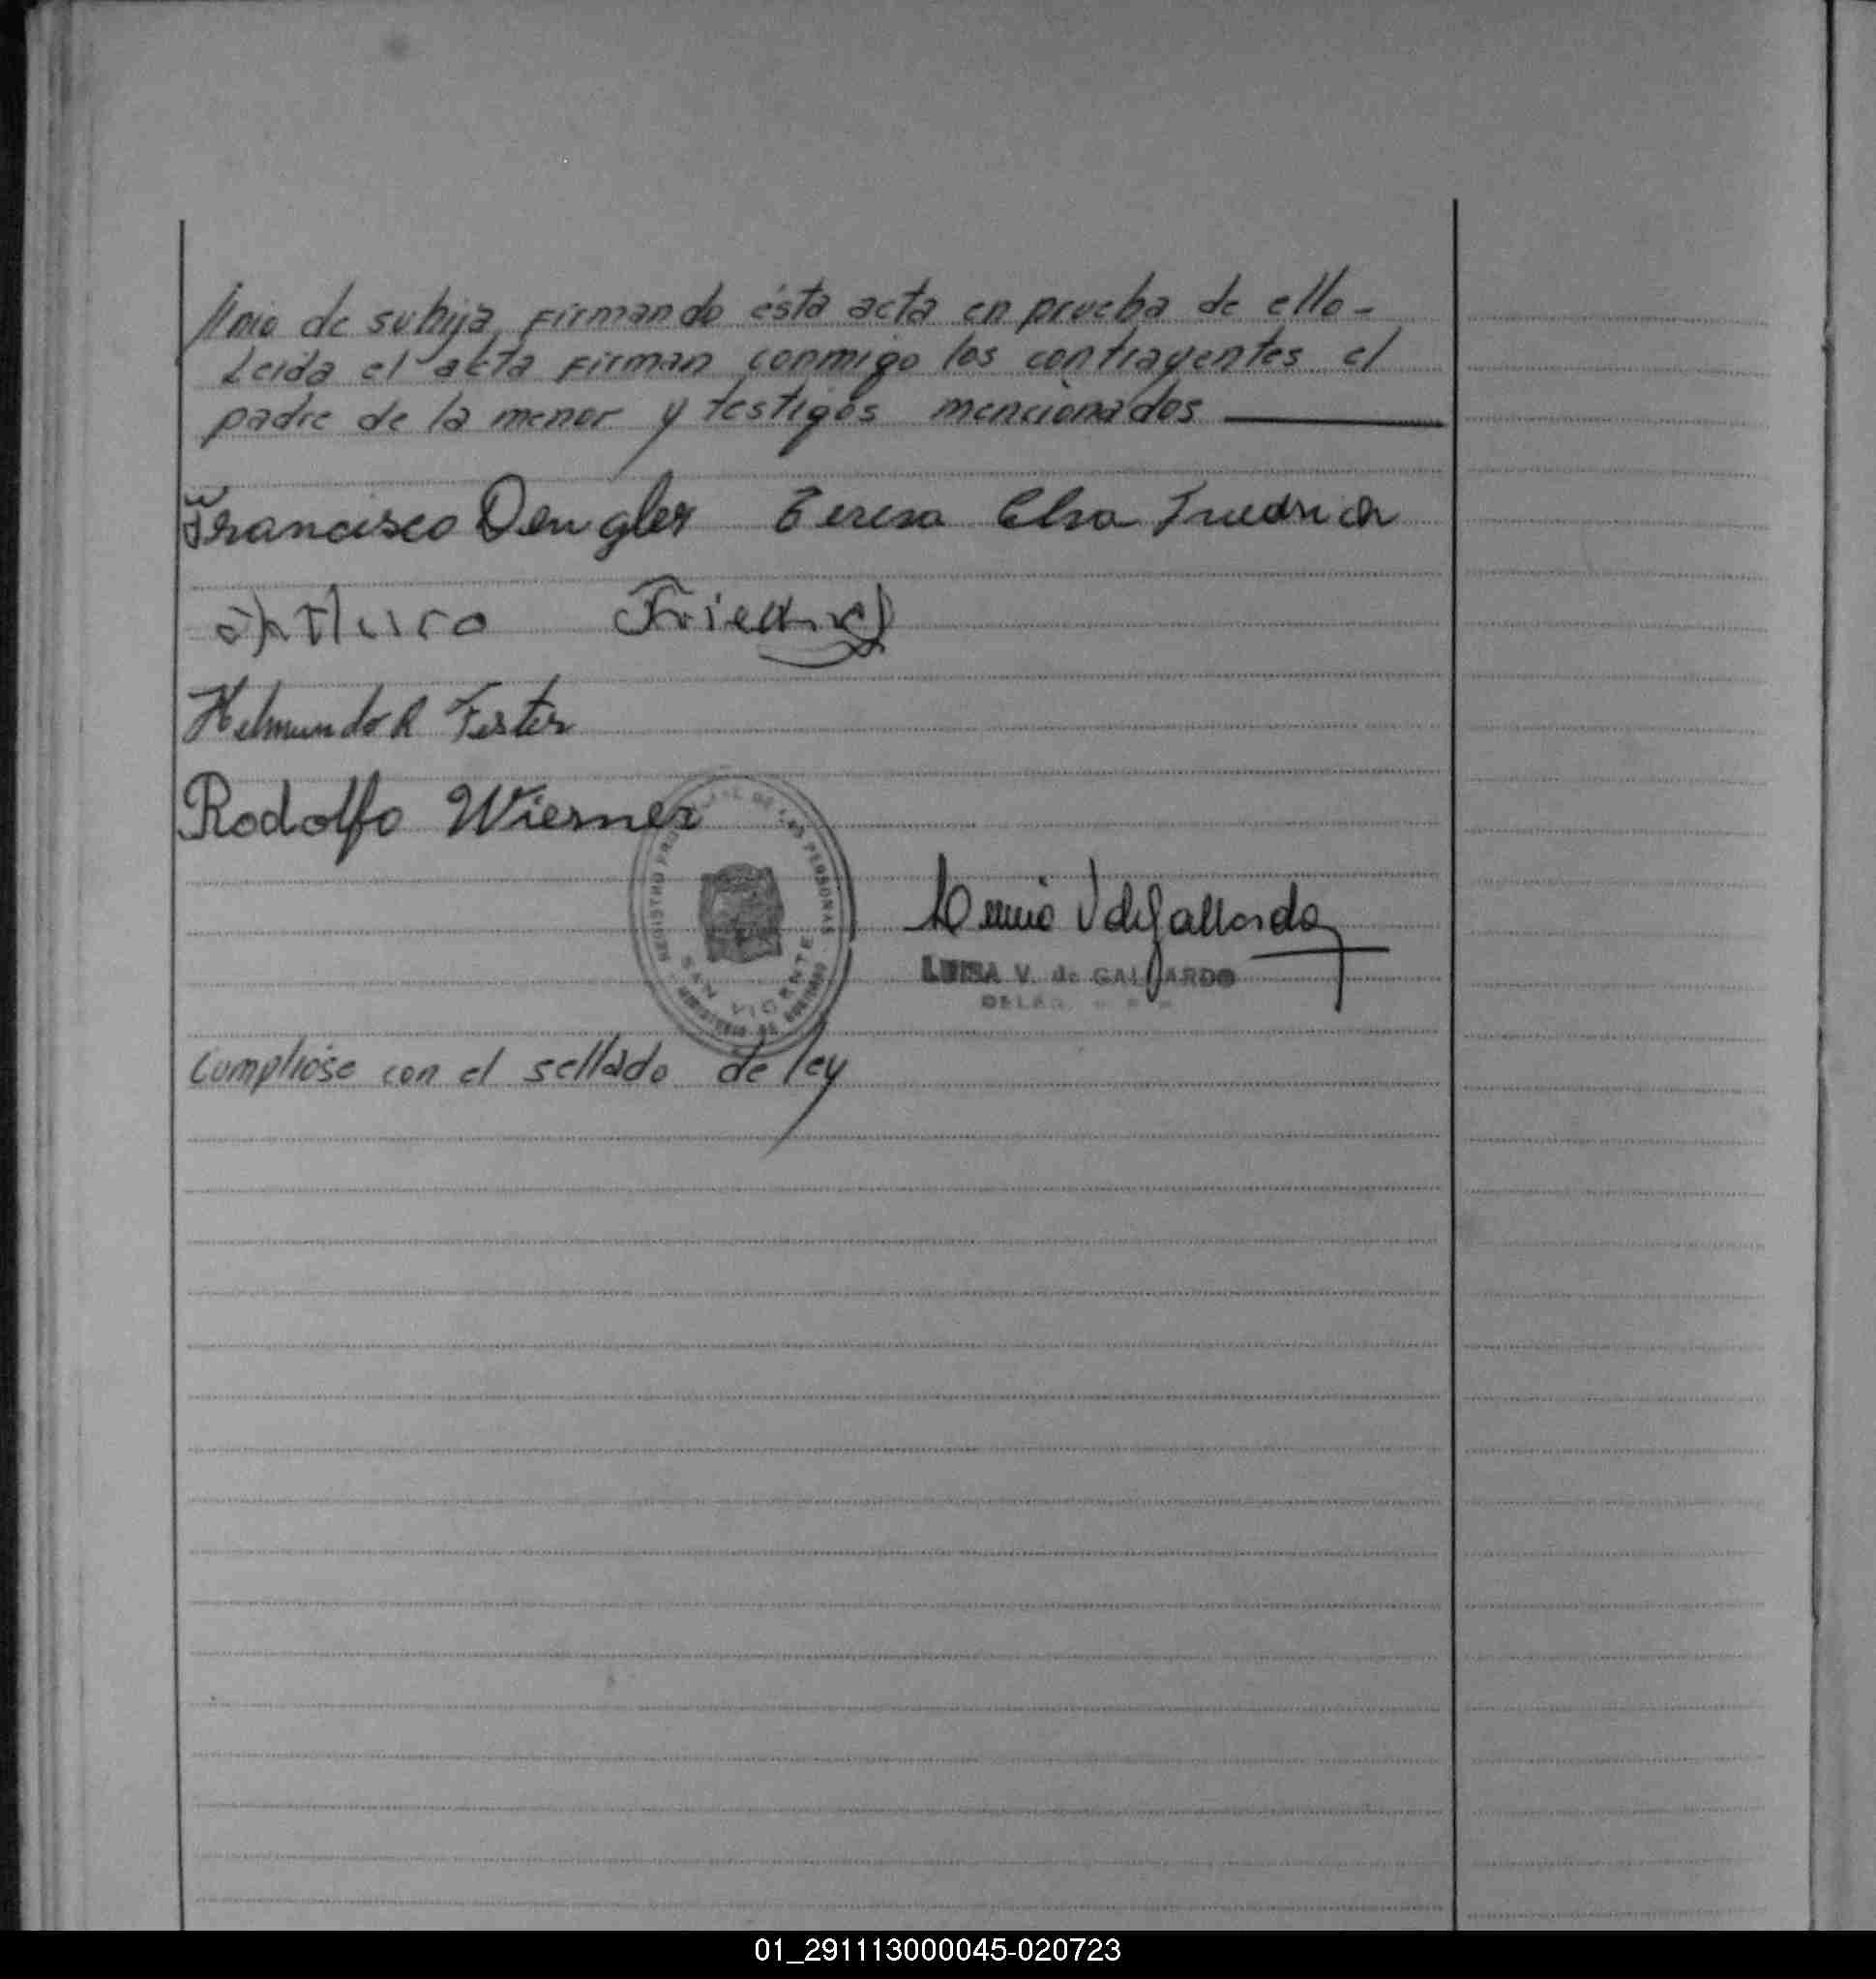 monio de su hija, firmando ésta acta en prueba de ello-
Leida el acta firman conmigo los contrayentes el
padre de la menor y testigos mencionados
Francisco Dengler Teresa Elsa Friedrich
Arturo Friedrich
Helmundo R Fester
Rodolfo Wierner
REGISTRO DE LAS PERSONAS
SAN VICENTE
V de Gallardo
LUISA V. de GALLARDO
Cumplióse con el sellado de ley
01_291113000045-020723